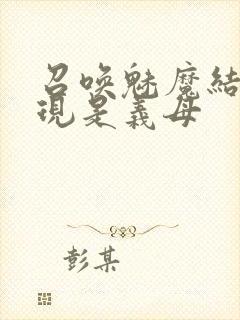 召唤魅魔結
現是義母
彭某